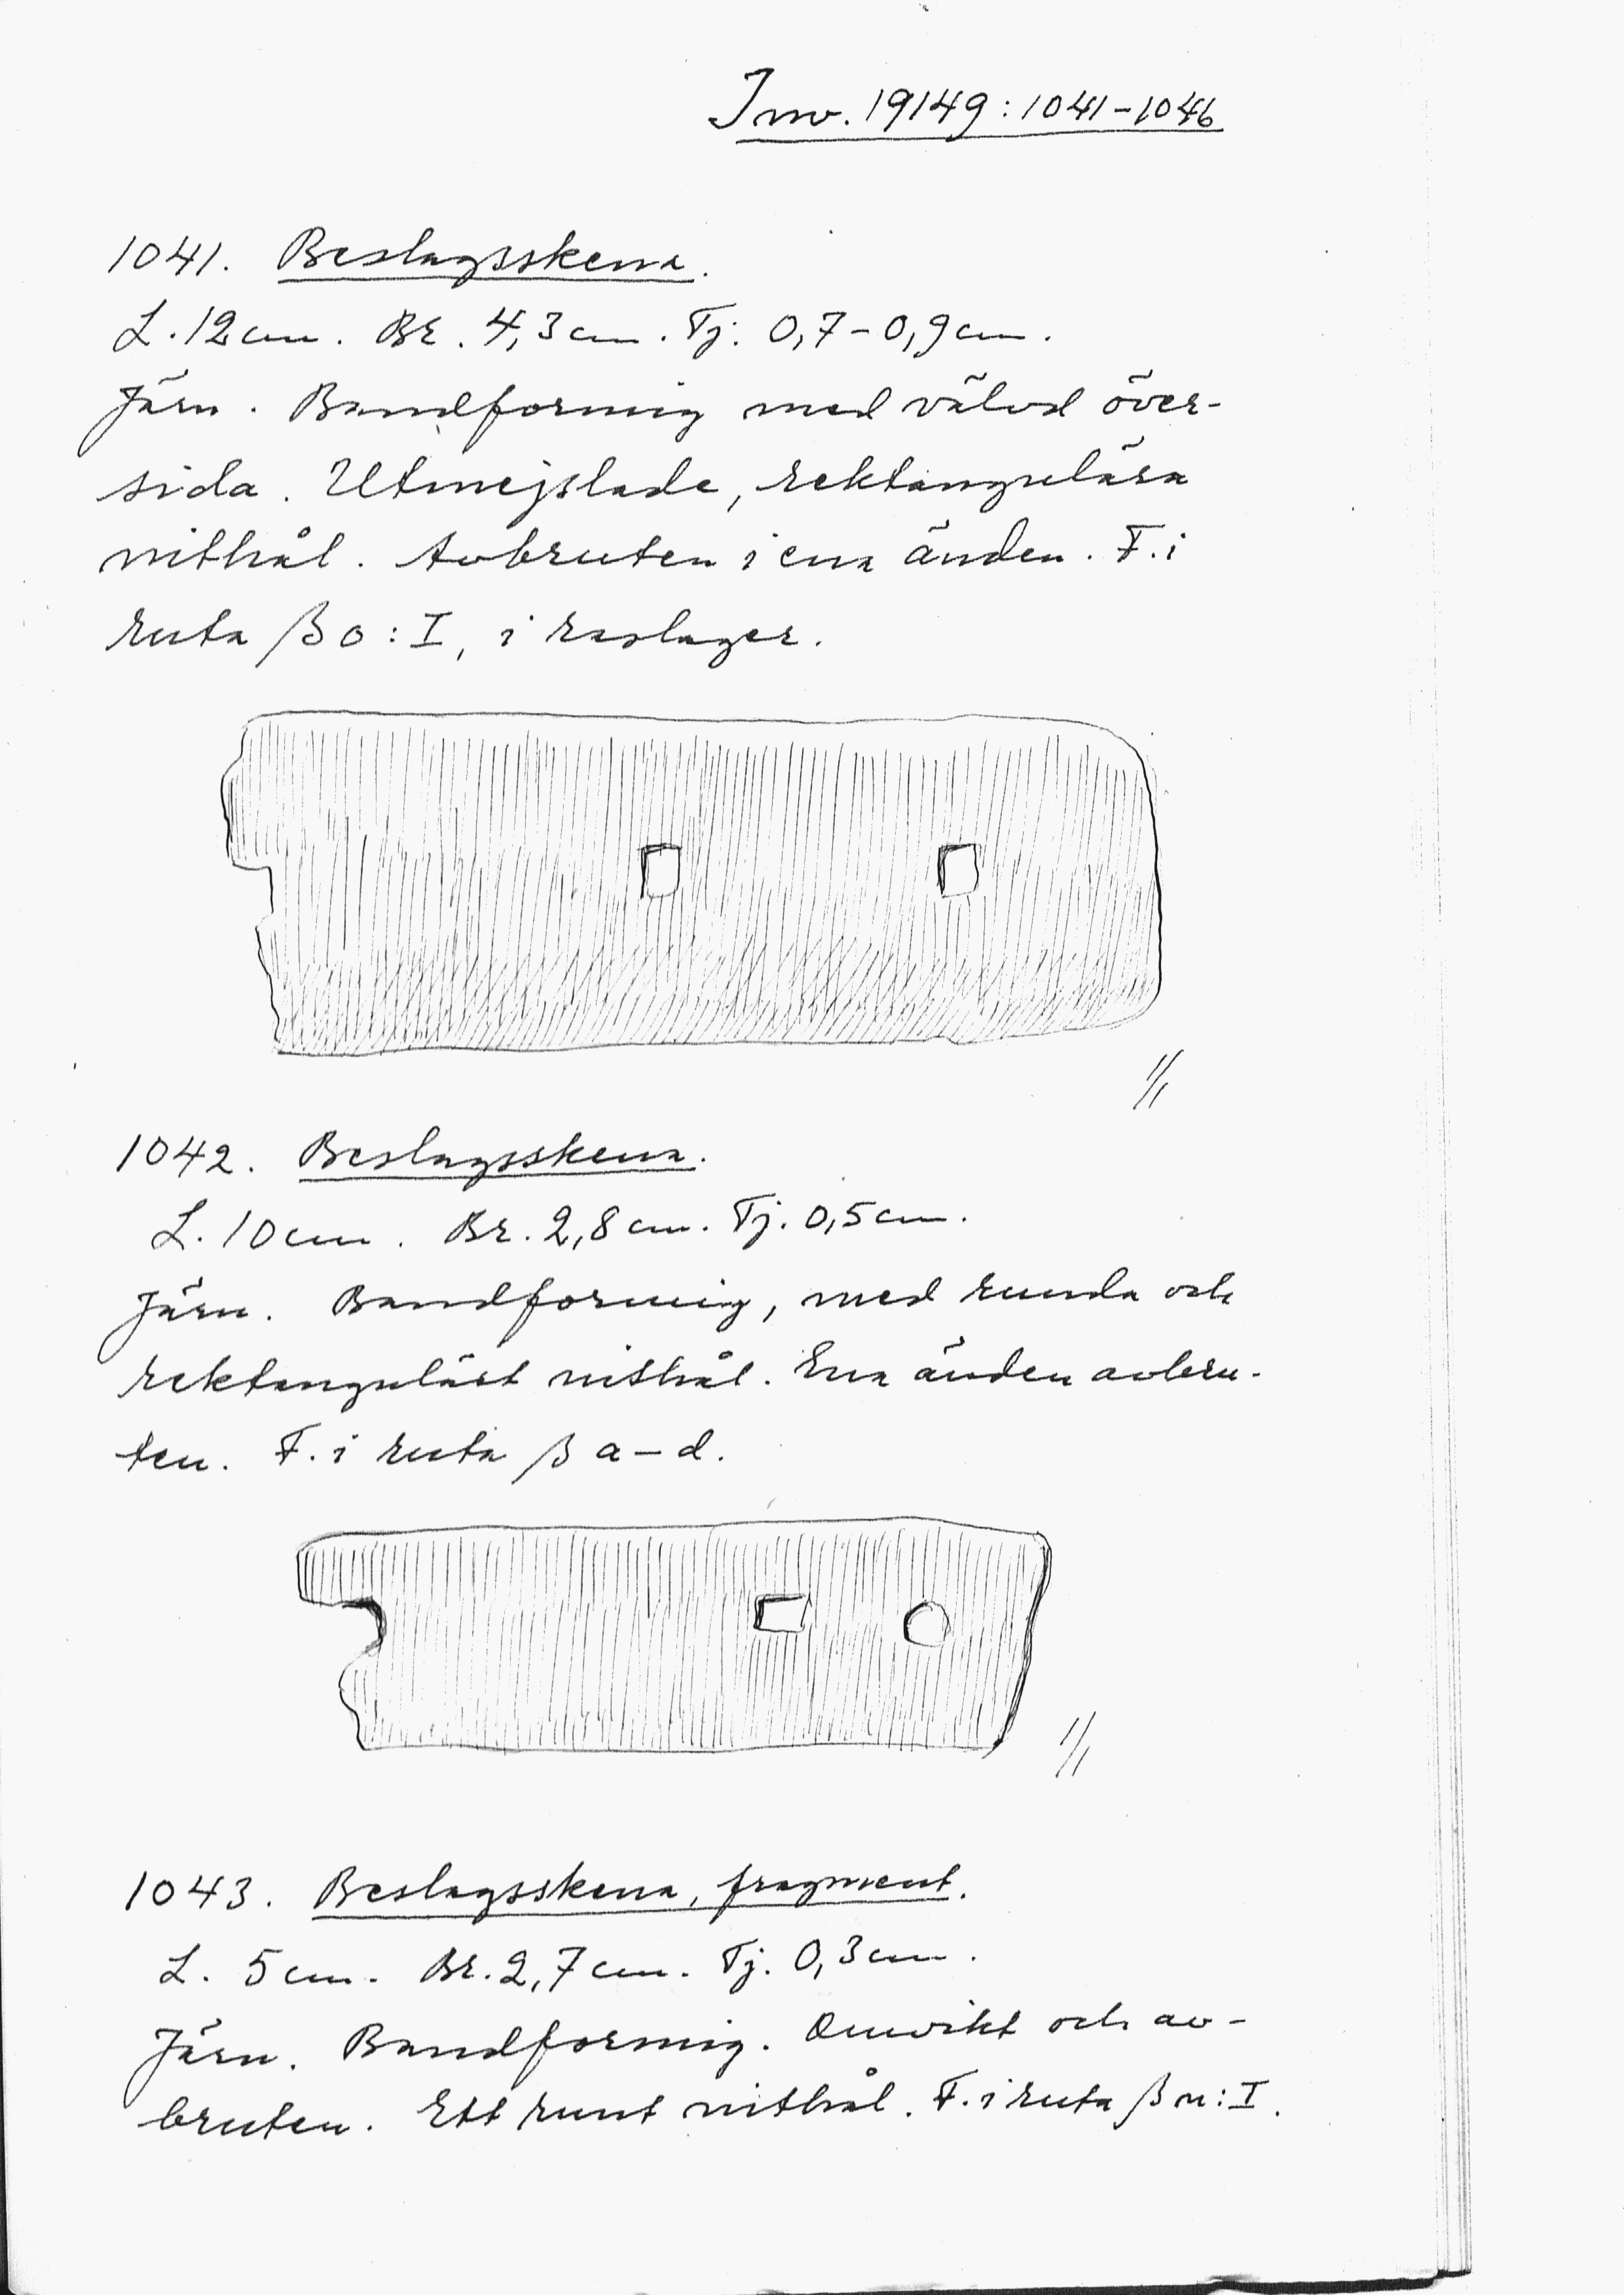 Inv. 19149:1041-1046
1041. Beslagsskena.
L. 12 cm. Br. 4,3 cm. Tj. 0,7-0,9 cm.
Järn. Bandformig med välvd över-
sida. Utmejslade, rektangulära
nithål. Avbruten i ena änden. F. i
ruta β o:I, i raslager.
1/1
1042. Beslagsskena.
L. 10 cm. Br. 2,8 cm. Tj. 0,5 cm.
Järn. Bandformig, med runda och
rektangulärt nithål. Ena änden avbru-
ten. F. i ruta β a-d.
1/1
1043. Beslagsskena, fragment.
L. 5 cm. Br. 2,7 cm. Tj. 0,3 cm.
Järn. Bandformig. Omvikt och av-
bruten. Ett runt nithål. F. i ruta β n:I.